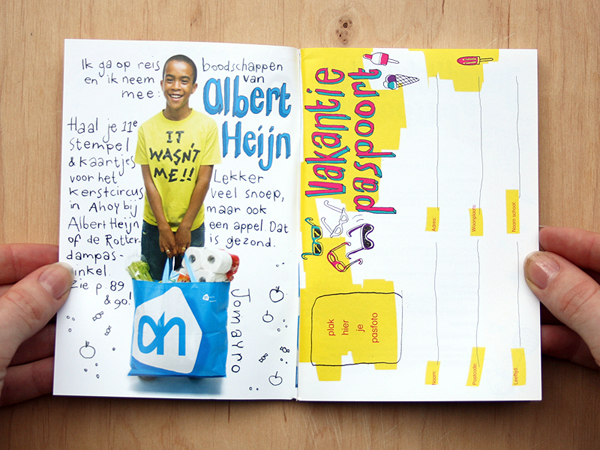 Ik ga op reis boodschappen
en ik neem van
mee:
albert
Heijn
Haal je 11e
stempel
& kaartjes
voor het
kerstcircus
in Ahoy bij
Albert Heijn
of de Rotter-
dampas-
winkel.
Zie p. 89
& go!
IT
WASN'T
ME!!
Lekker
veel snoep,
maar ook
een appel. Dat
is gezond.
Jomayro
ah
Vakantie
paspoort
plak
hier
je
pasfoto
Naam
Adres
Postcode
Woonplaats
Leeftijd
Naam school